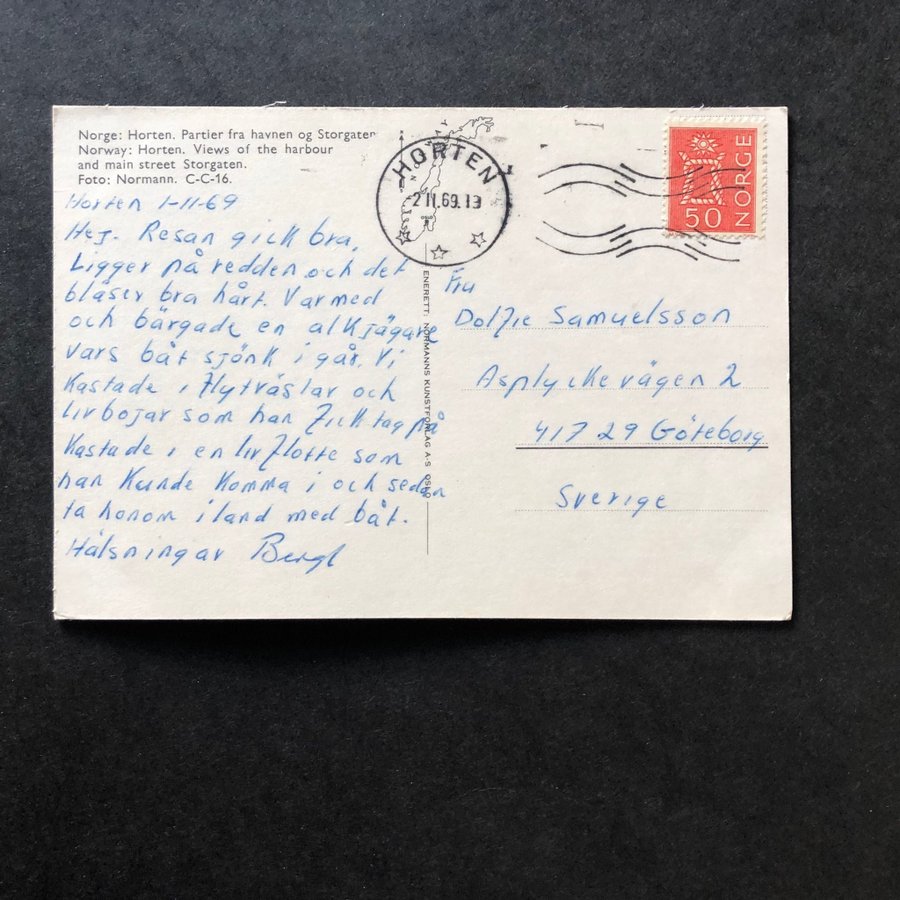 Norge: Horten. Partier fra havnen og Storgaten
Norway: Horten. Views of the harbour
and main street Storgaten.
Foto: Normann. C-C-16.
Horten 1-11-69
Hej. Resan gick bra,
Ligger på redden och det
blåser bra hårt. Var med
och bärgade en alkjägare
vars båt sjönk i går. Vi
Kastade i flytväslar och
Livbojar som han fick tag på
Kastade i en livflotte som
han Kunde Komma i och sedan
ta honom i land med båt.
Hälsningar
HORTEN
-2 11.69.13
OSLO
NORGE
50
ENERETT: NORMANNS KUNSTFORLAG A-S OSLO
Fru
Samuelsson
Asplyckevägen 2
417 29 Göteborg
Sverige